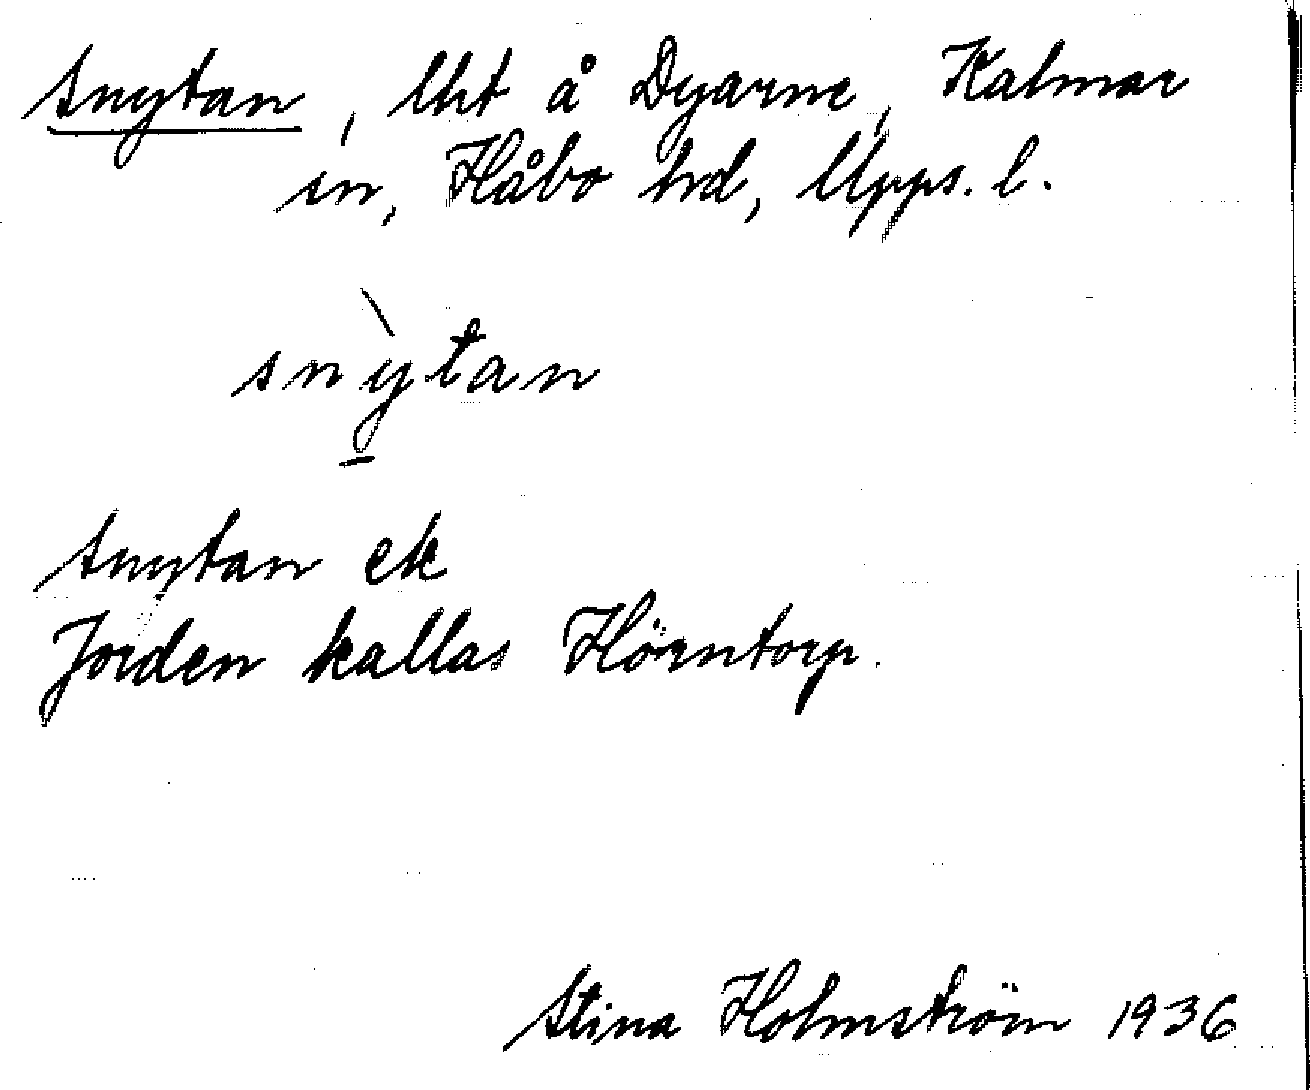 Snytan, lht å Dyarne, Kalmar
sn, Håbo hd, Upps. l.
snỳ̠tan
Snytan ek
Jorden kallas Hörntorp.
Stina Holmström 1936